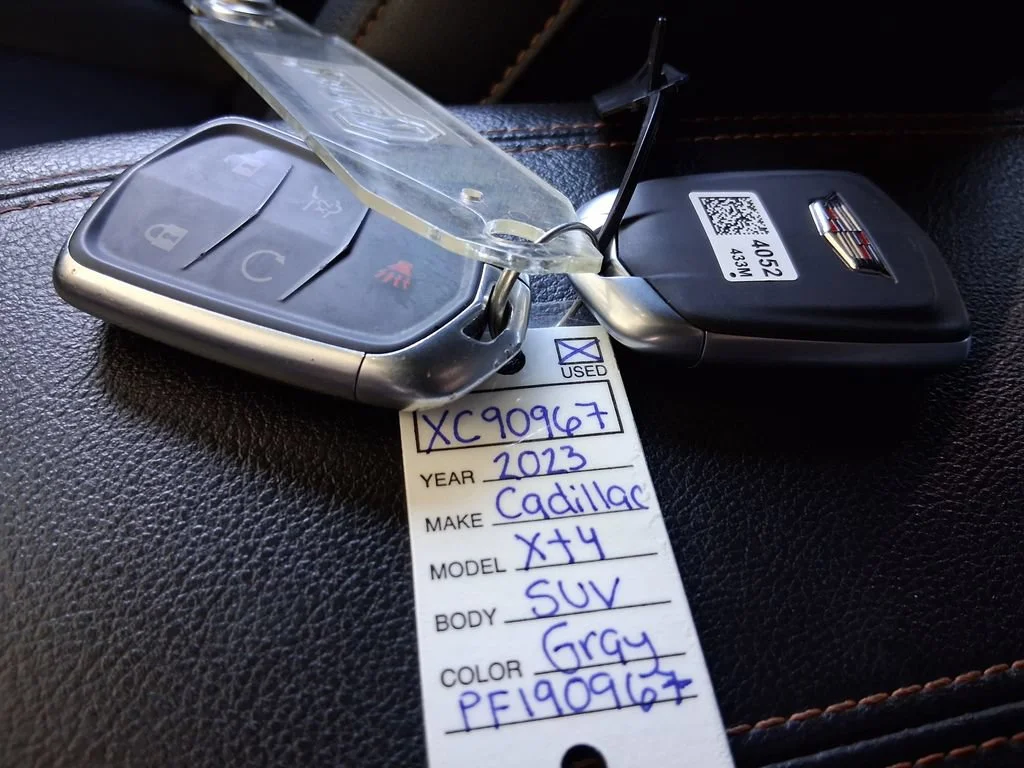 USED
XC90967
YEAR 2023
MAKE Cadillac
MODEL Xt4
BODY SUV
COLOR Gray
PF190967
4052
433M